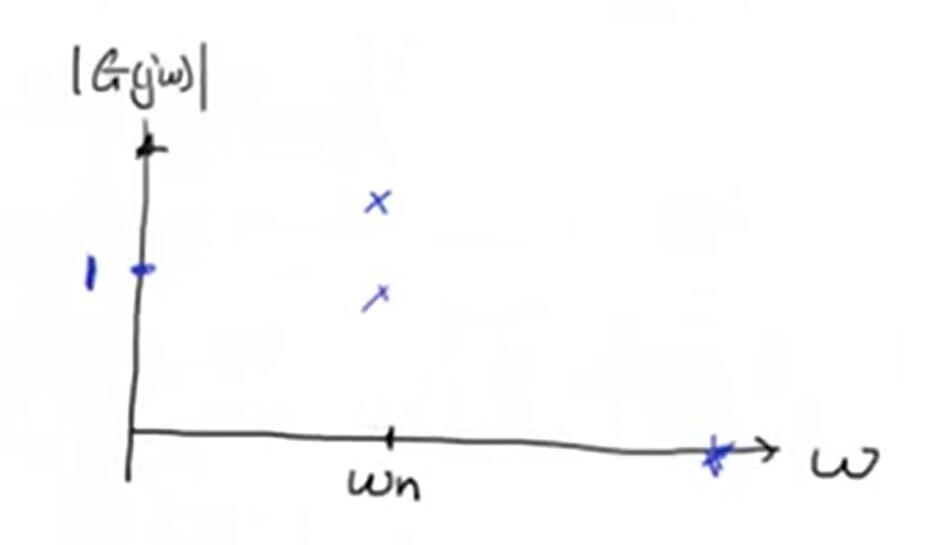 |G(jω)|
1
ωn
ω